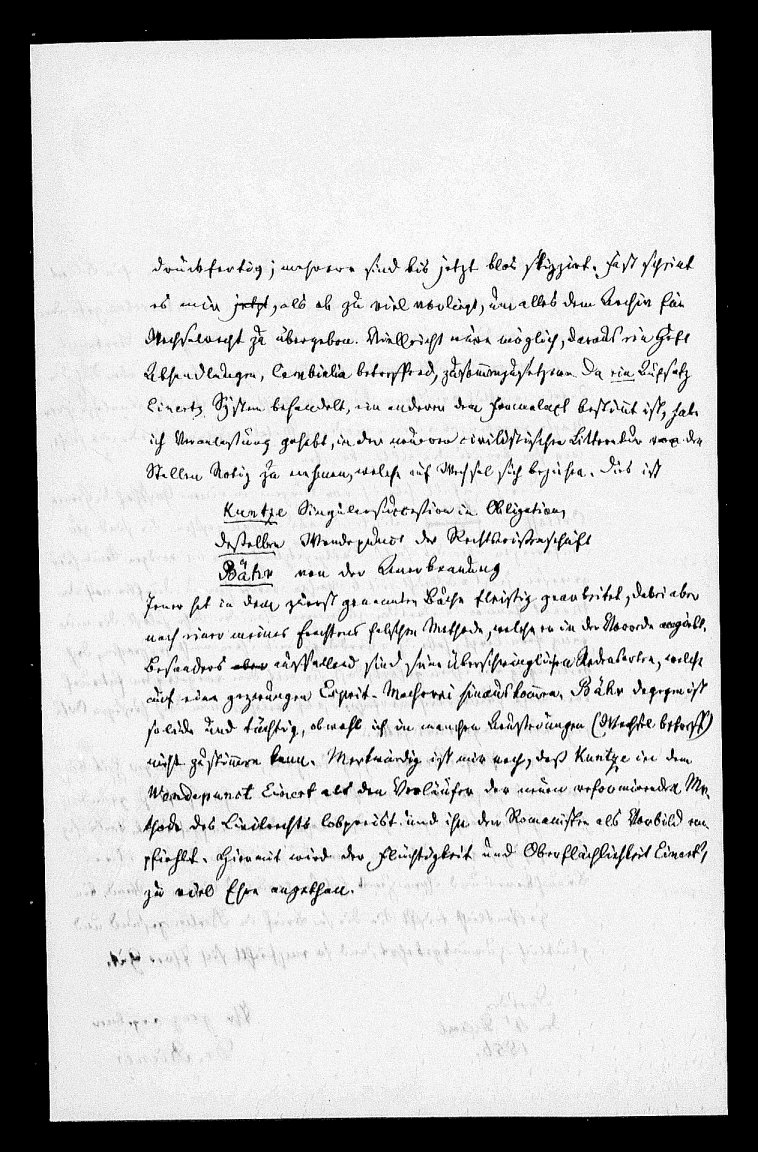 druckfertig; mehrere sind bis jetzt blos skizzirt. Fast scheint
es mir jetzt, als ob zu viel vorliegt, um alles dem Archiv für
Wechselrecht zu übergeben. Vielleicht wäre möglich, daraus ein Heft
Abhandlungen, Cambialia betreffend, zusammenzusetzen. Da ein Aufsatz
Einerts System behandelt, ein anderer dem Formalact bestimt ist, habe
ich Veranlassung gehabt, in der neueren civilistischen Litteratur von den
Stellen Notiz zu nehmen, welche auf Wechsel sich beziehen. Dies ist
Kuntze Singularsuccession in Obligationen
desselben Wendepunct der Rechtswissenschaft
Bähr von der Anerkennung
Jener hat in dem zuerst genannten Buche fleissig gearbeitet, dabei aber
nach einer meines Erachtens falschen Methode, welche er in der Vorrede
Besonders aber auffallend sind seine überschwenglichen Redensarten, welche
auf eine gezwungene Esprit-Macherei hinauskommen. Bähr dagegen ist
solide und tüchtig, obwohl ich in manchen Äusserungen (Wechsel betreff)
nicht zustimmen kann. Merkwürdig ist mir noch, daß Kuntze in dem
Wendepunct Einert als den Vorläufer der neuen reformirenden Me-
thode des Civilrechts lobpreist und ihn den Romanisten als Vorbild em-
pfiehlt. Hiermit wird der Flüchtigkeit und Oberflächlichkeit Einert's
zu viel Ehre angethan.